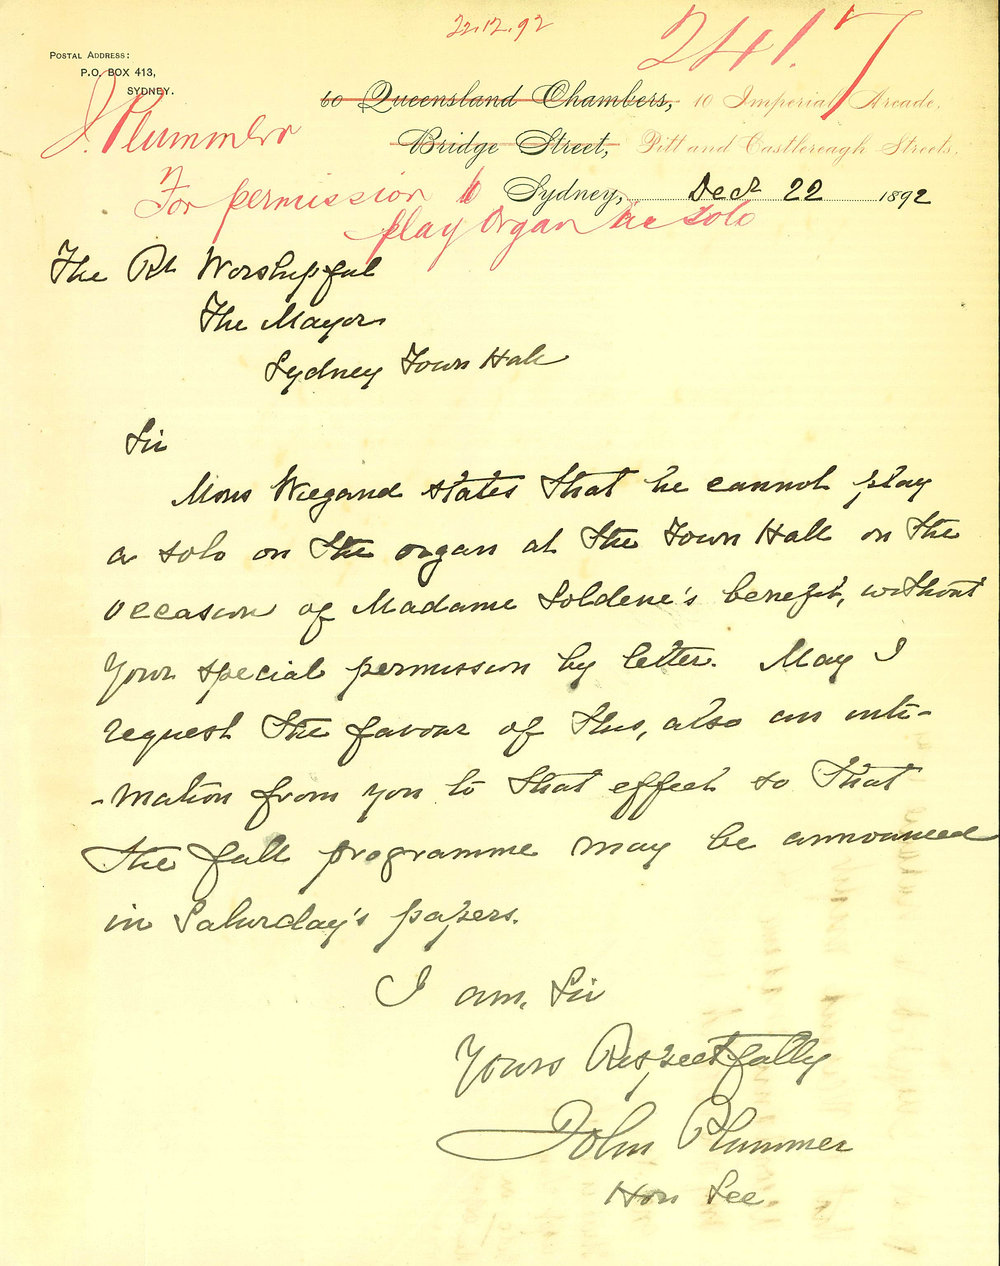 22.12.92
2417
POSTAL ADDRESS:
P.O. BOX 413,
SYDNEY.
60 Queensland Chambers, 10 Imperial Arcade,
J. Plummer
Bridge Street, Pitt and Castlereagh Streets,
For permission to
Sydney, Decr 22 1892
play organ solo
The Rt Worshipful
The Mayor
Sydney Town Hall
Sir
Mons Wiegand states that he cannot play
a solo on the organ at the Town Hall on the
occasion of Madame Soldene's benefit, without
your special permission by letter. May I
request the favour of this, also an inti-
-mation from you to that effect so that
the full programme may be announced
in Saturday's papers.
I am, Sir
Yours Respectfully
John Plummer
Hon Sec